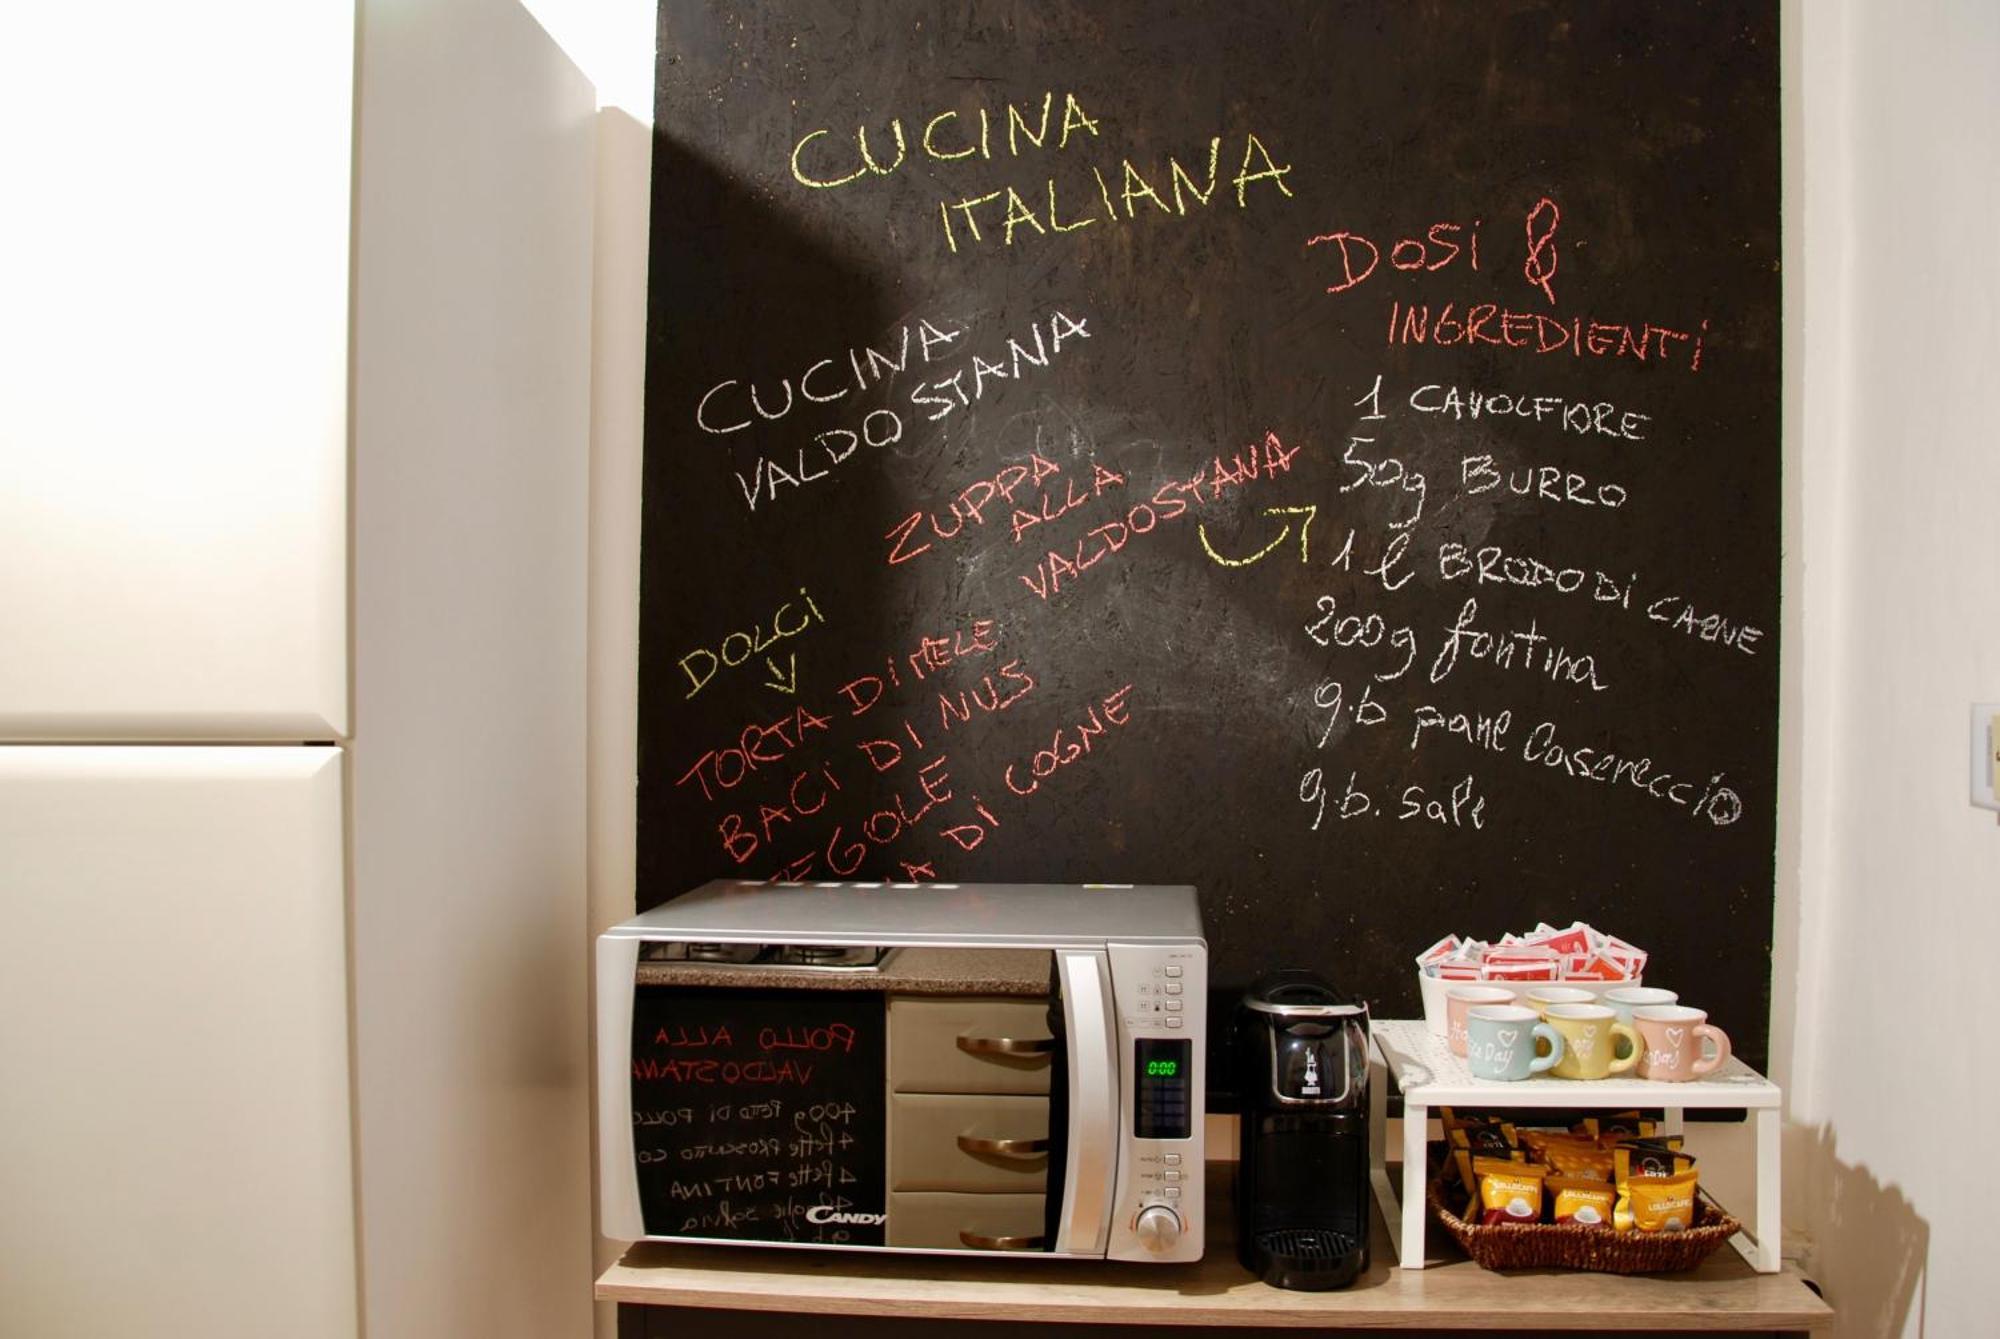 CUCINA
ITALIANA
CUCINA
VALDOSTANA
ZUPPA
ALLA
VALDOSTANA
DOLCI
TORTA DI MELE
BACI DI NUS
TEGOLE
DI COGNE
DOSI &
INGREDIENTI
1 CAVOLFIORE
50g BURRO
1 l BRODO DI CARNE
200g fontina
q.b pane Casereccio
q.b. sale
POLLO ALLA
VALDOSTANA
400g PETTO DI POLLO
4 fette PROSCIUTTO CO
4 fette FONTINA
foglie SALVIA
q.b
CANDY
0:00
Day
LOLLOCAFFÈ
LOLLOCAFFÈ
LOLLOCAFFÈ